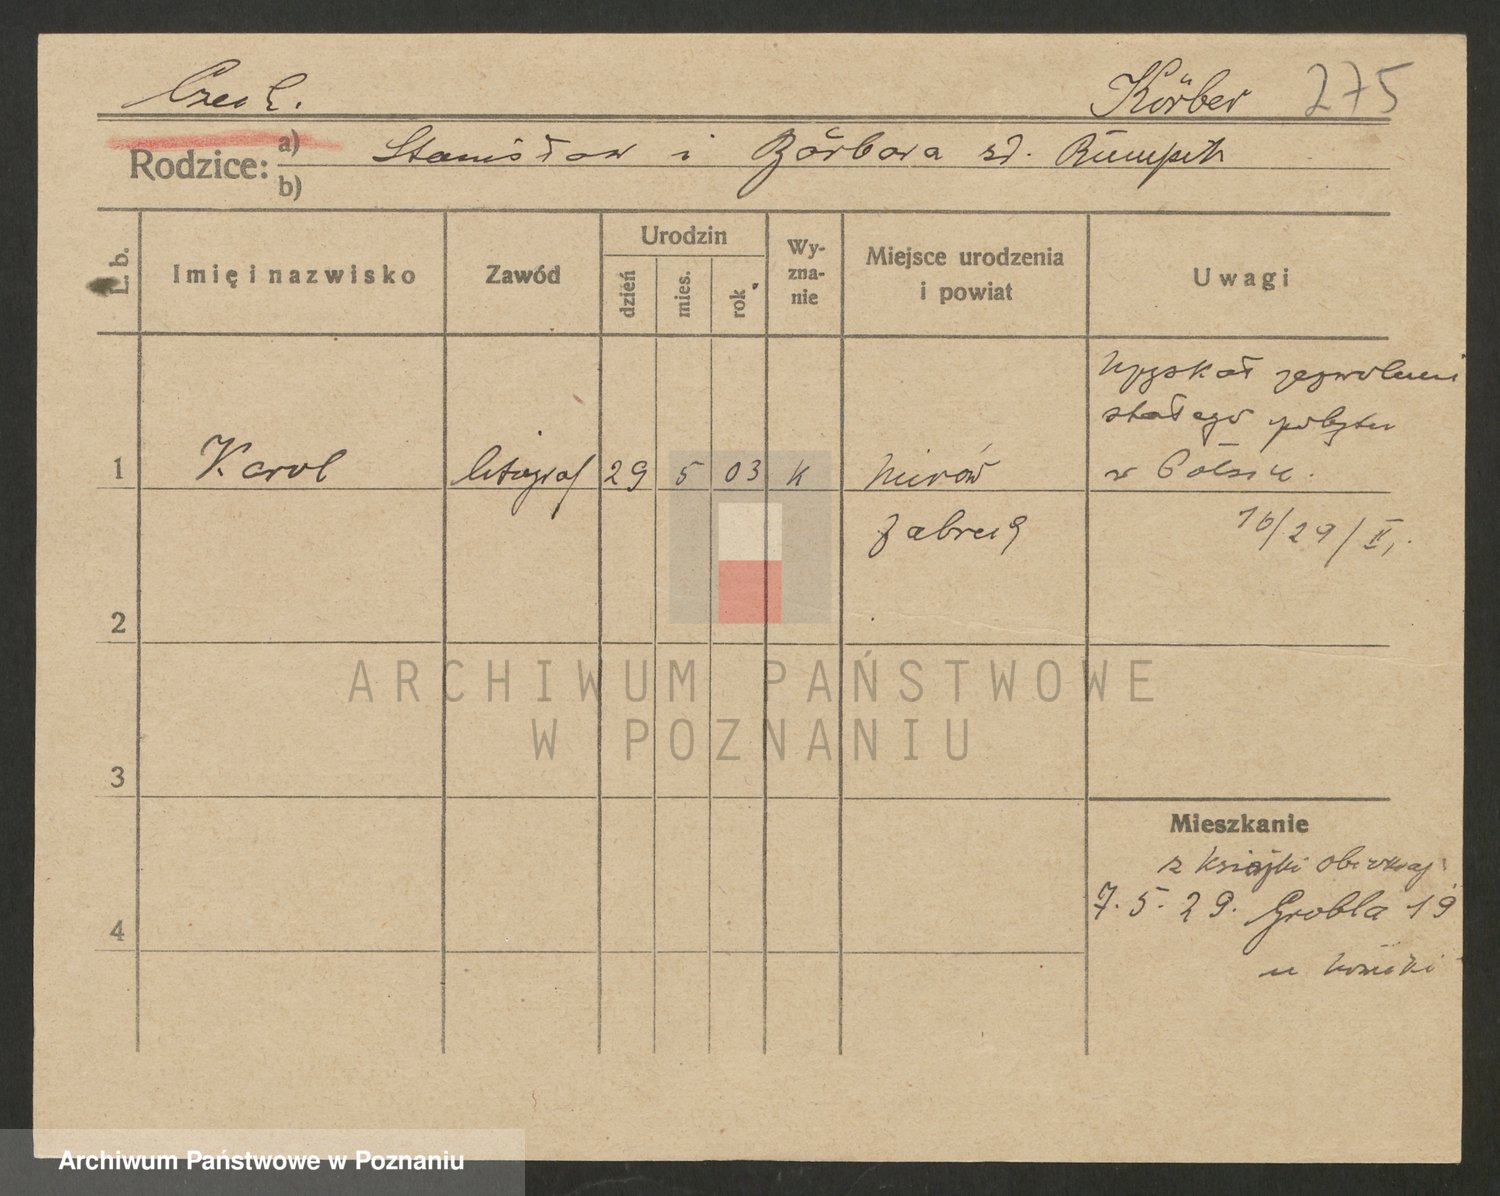 Czech.
Körber 275
Rodzice: a) Stanisław i Barbara zd.
b)
L. b.
Imię i nazwisko
Zawód
Urodzin
dzień
mies.
rok
Wy-
zna-
nie
Miejsce urodzenia
i powiat
Uwagi
Uzyskał zezwolenie
stałego pobytu
w Polsce.
1 Karol litograf 29 5 03 K Mirów
16/29/II,
2
ARCHIWUM PAŃSTWOWE
W POZNANIU
3
Mieszkanie
z książki
7.5.29. Grobla 19
4
u
Archiwum Państwowe w Poznaniu